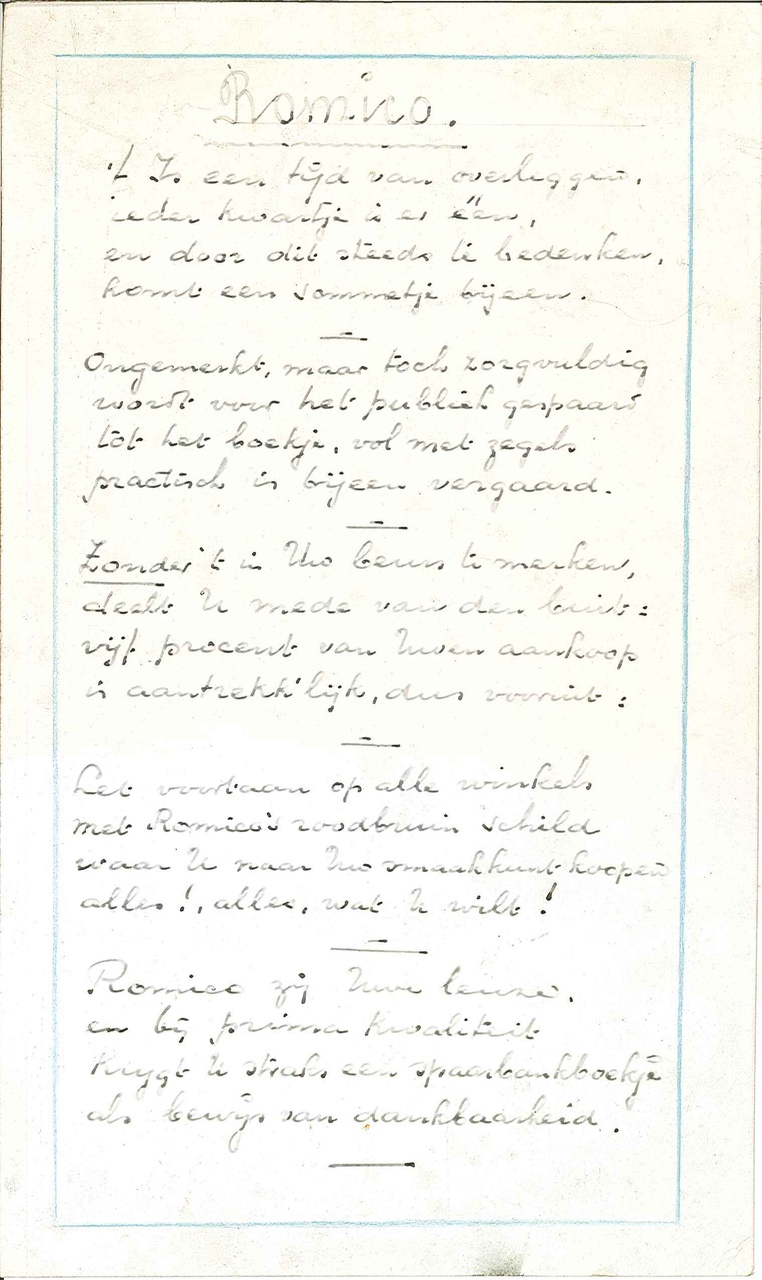 Romico.
't Is een tijd van overleggen,
ieder kwartje is er één,
en door dit steeds te bedenken,
komt een sommetje bijeen.
Ongemerkt, maar toch zorgvuldig
wordt voor het publiek gespaard
tot het boekje, vol met zegels
practisch is bijeen vergaard.
Zonder 't in Uw beurs te merken,
deelt U mede van den buit:
vijf procent van Uwen aankoop
is aantrekk'lijk, dus vooruit:
Let voortaan op alle winkels
met Romico's roodbruin schild
waar U naar Uw smaak kunt koopen
alles!, alles, wat U wilt!
Romico zij Uwe leuze,
en bij prima kwaliteit
krijgt U straks een spaarbankboekje
als bewijs van dankbaarheid.